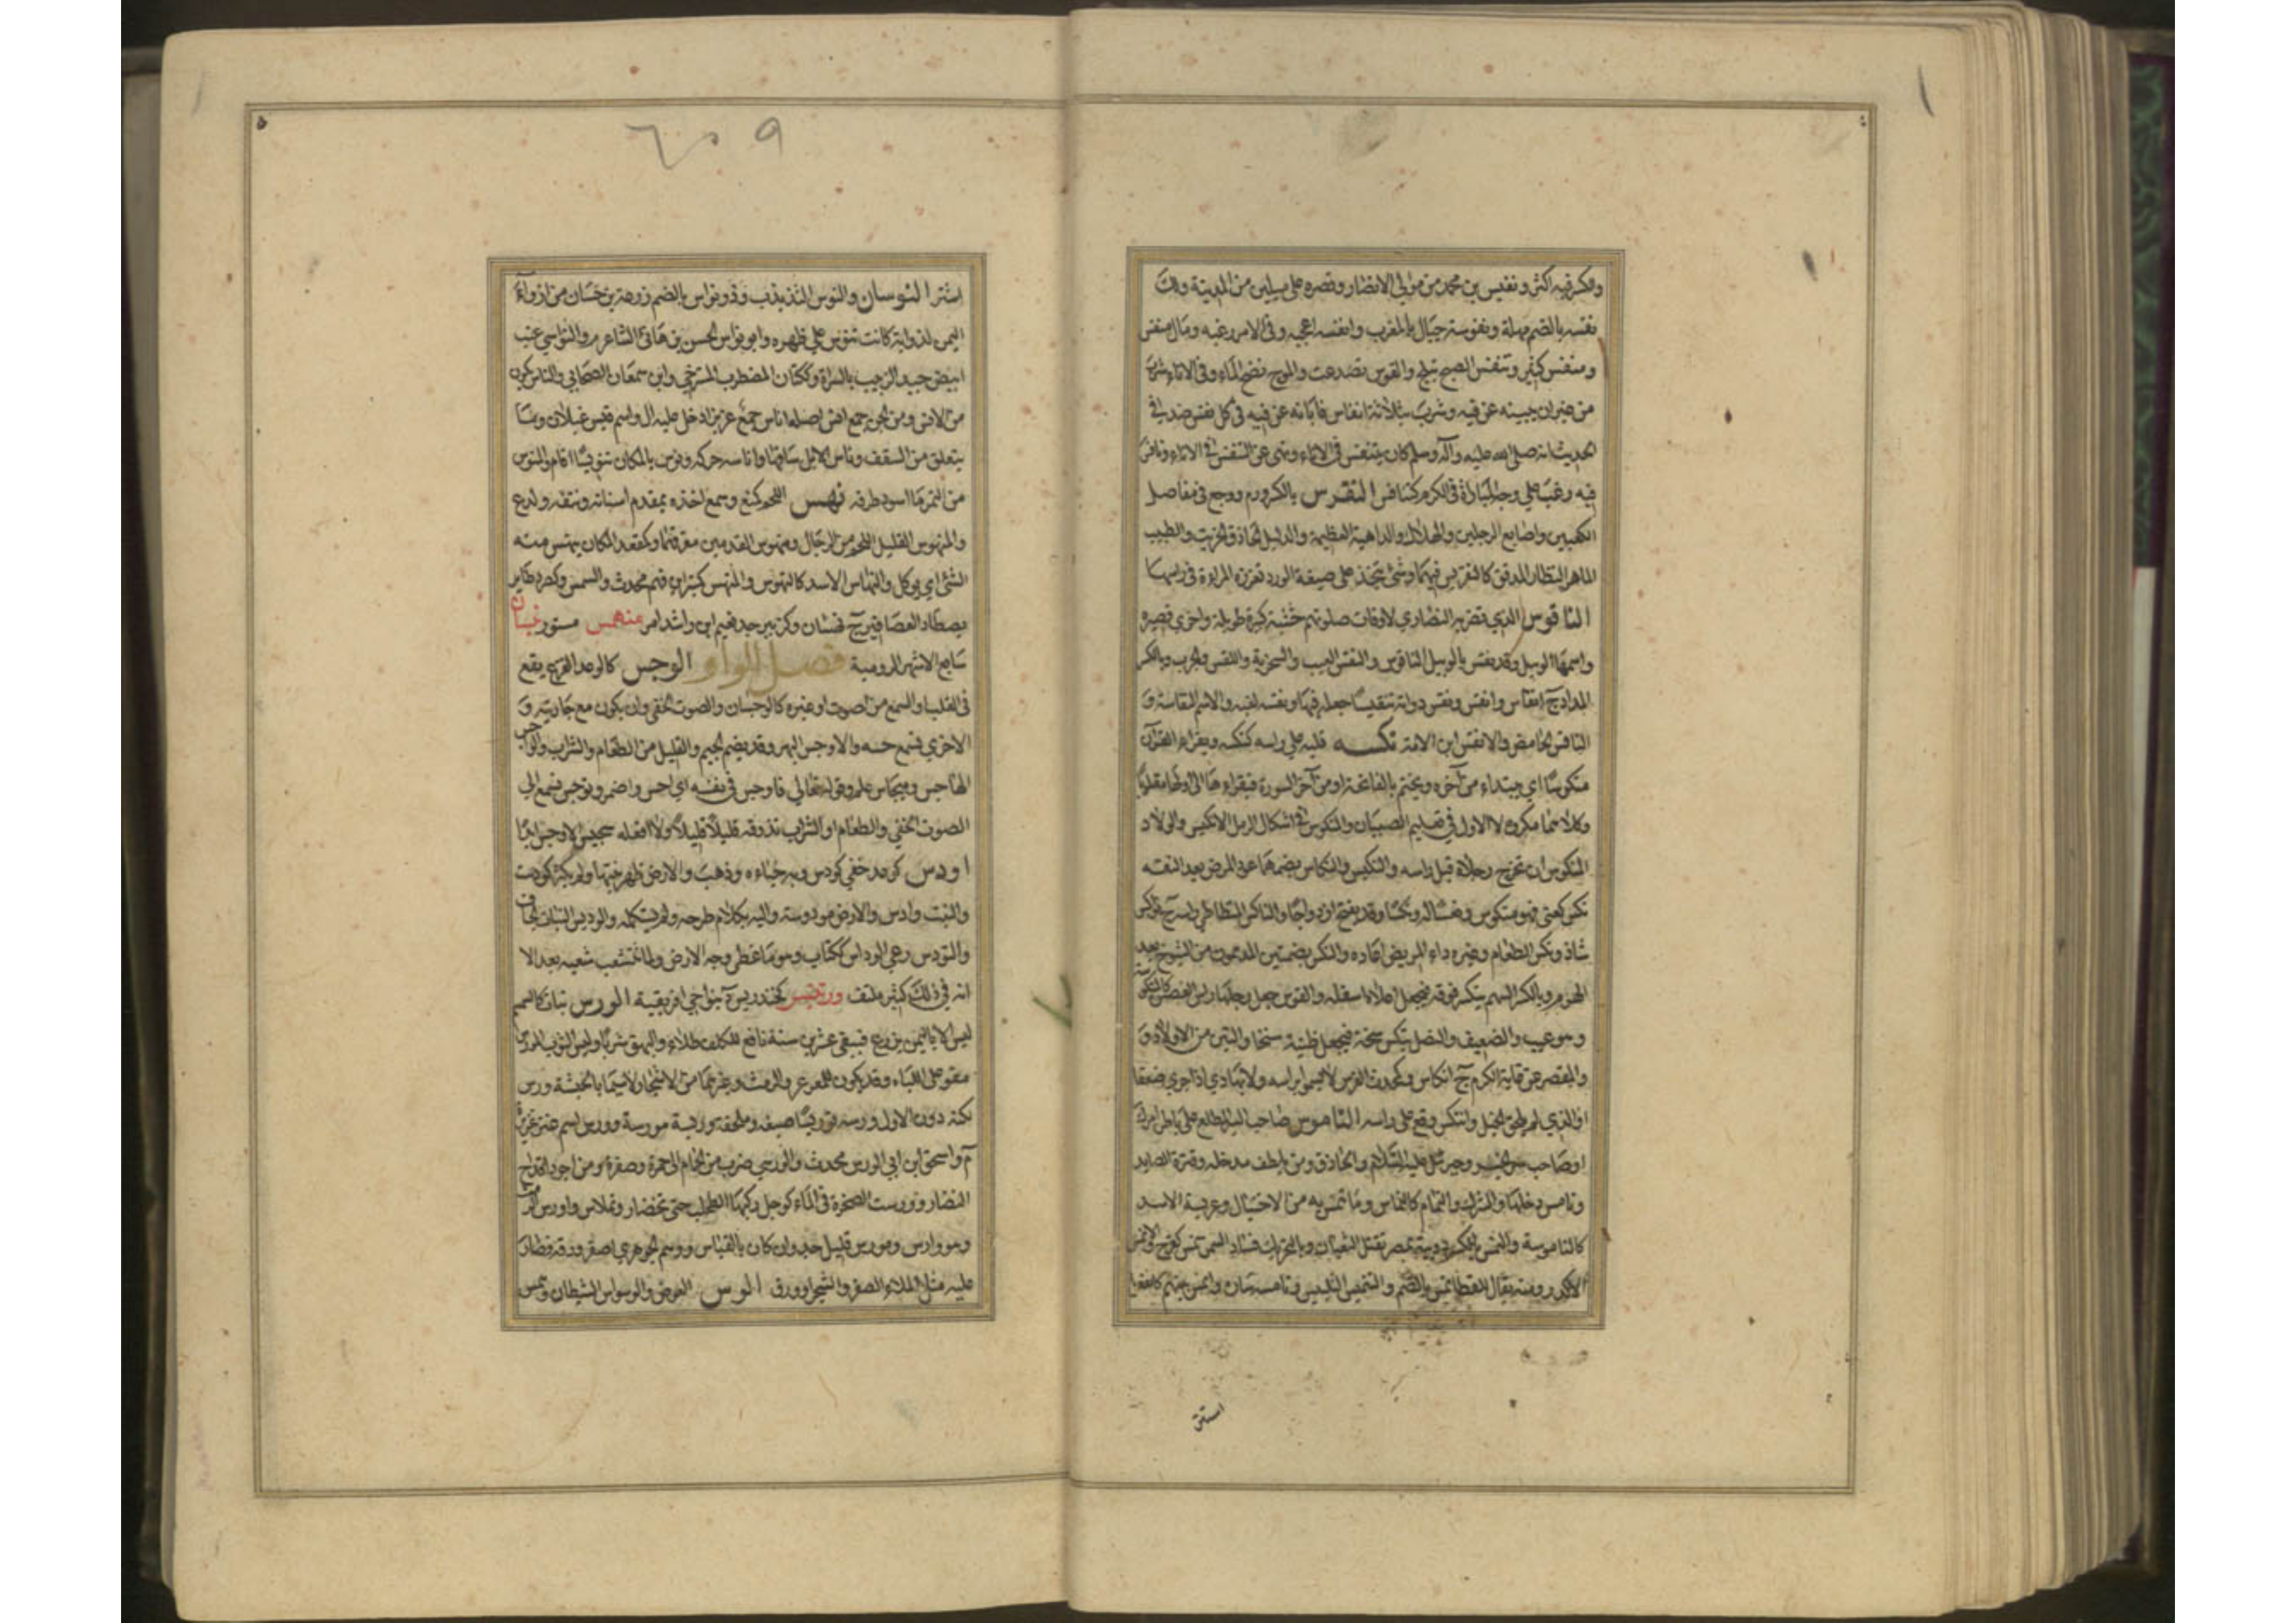 والكرفيه اكثر ونفيس بن محمد من موالي الانصار وقصره على ميلين من المدينة ولك
نفسه بالضم مهلة ونفوسة جبال بالمغرب وانفسه اعجبه وفي الامر رغبه ومال منفس
ومنفس كثير وتنفس الصبح تبلج والقوس تصدعت والموج نضح الماء وفي الاناء شرب
من غير ان يبينه عن فيه وشرب بثلاثة انفاس فابانه عن فيه في كل نفس ضد وفي
الحديث انه صلى الله عليه وآله وسلم كان يتنفس في الاناء ونهى عن التنفس في الاناء ونافس
فيه رغب على وجه المباراة في الكرم كتنافس النقرس بالكسر ورم ووجع في مفاصل
الكعبين واصابع الرجلين والهلاك والداهية العظيمة والدليل الحاذق الخريت والطبيب
الماهر النظار المدقق كالنقريس فيهما وشئ يتخذ على صيغة الورد تغرزه المراة في راسها
الناقوس الذي تضربه النصاري لاوقات صلوتهم خشبة كبيرة طويلة واخري قصيرة
واسمها الوبيل وقد نقس بالوبيل الناقوس والنقس العيب والسخرية واللقس والجرب وبالكسر
المداد ج انقاس وانقس ونقس دواته تنقيسا جعله فيها ونقسه لقبه والاسم النقاسة و
الناقس الحامض والانقس ابن الامة نكسه قلبه على راسه كنكسه ويقراء القران
منكوسا اي يبتداء من آخره ويختم بالفاتحة او من آخر السورة فيقراءها الى اولها مقلوبا
وكلاهما مكروه لا الاول في تعليم الصبيان والنكوس في اشكال الرمل الانكيس والولاد
المنكوس ان تخرج رجلاه قبل راسه والنكس والنكاس بضمهما عود المرض بعد النقه
نكس كعني فهو منكوس وتعسا له ونكسا وقد يفتح ازدواجا والناكس المتطاطي راسه ج نواكس
شاذ ونكس الطعام وغيره داء المريض اعاده والنكس بضمتين المدرهمون من الشيوخ بعد
الهرم وبالكسر السهم ينكسر فوقه فيجعل اعلاه اسفله والقوس جعل رجلها راس الغصن كالمنكوسة
وهو عيب والضعيف والنصل ينكسر سنخه فيجعل ظبته سنخا واليتن من الاولاد و
والمقصر عن غاية الكرم ج انكاس وكمحدث الفرس لا يسمو براسه ولا بهاديه اذا جري ضعفا
او الذي لم يلحق الخيل وانتكس وقع على راسه الناموس صاحب السر المطلع على باطن امرك
او صاحب سر الخير وجبرئيل عليه السلام والحاذق ومن يلطف مدخله وقترة الصايد
ونامس دخلها والشرك والنمام كالنماس وما تنمس به من الاحتيال وعريسة الاسد
كالناموسة والنمس بالكسر دويبة بمصر تقتل الثعبان وبالتحريك فساد السمن نمس كفرح والانمس
الاكدر ومنه يقال للقطا نمس بالضم والتنميس التلبيس ونامسه ساره وانمس بينهم
استتر
استتر النوسان والنوس التذبذب وذو نواس بالضم زرعة بن حسان من اذواء
اليمن لذوابة كانت تنوس على ظهره وابو نواس الحسن بن هانئ الشاعر م والنواسي عنب
ابيض جيد الزبيب بالسراة وككتان المضطرب المسترخي وابن سمعان الصحابي والناس يكون
من الانس ومن الجن جمع انس اصله اناس جمع عزيز ادخل عليه ال واسم قيس عيلان وما
يتعلق من السقف وناس الابل ساقها واناسه حركه ونوس بالمكان تنويسا اقام والمنوس
من التمر ما اسود طرفه نهس اللحم كمنع وسمع اخذه بمقدم اسنانه ونتفه ولدغ
والمنهوس القليل اللحم من الرجال ومنهوس القدمين معرقهما وكمقعد المكان ينهس منه
الشئ اي يوكل والنهاس الاسد كالنهوس والمنهس كمنبر ابن فهم محدث والسمس وكصرد طاير
يصطاد العصافير ج نهسان وكزبير جد نعيم ابن راشد امر منهمس مستور نيسان
سابع الاشهر الرومية فصل الواو الوجس كالوعد الفزع يقع
في القلب او السمع من صوت او غيره كالوجسان والصوت الخفي وان يكون مع جاريته و
الاخري تسمع حسه والاوجس الدهر وقد يضم الجيم والقليل من الطعام والشراب والواجس
الهاجس وميجاس علم وقوله تعالى فاوجس في نفسه اي احس واضمر وتوجس تسمع الى
الصوت الخفي والطعام او الشراب تذوقه قليلا قليلا ولا افعله سجيس الاوجس ابدا
اودس كوعد خفي كودس وبه خباءه وذهب والارض ظهر نبتها ولم يكثر كودست
والنبت وادس والارض مودوسة واليه بكلام طرحه ولم يستكمله والوديس النبات الجاف
والتودس رعي الوداس ككتاب وهو ما غطى وجه الارض ولما تتشعب شعبه بعد الا
انه في ذلك كثير ملتف ورتنيس كخندريس د بنواحي افريقية الورس نبات كالسمسم
ليس الا باليمن يزرع فيبقى عشرين سنة نافع للكلف طلاء وللبهق شربا ولبس الثوب المورس
مقو على الباه وقد يكون للعرعر والرمث وغيرهما من الاشجار لاسيما بالحبشة ورس
لكنه دون الاول وورسه توريسا صبغه وملحفة وريسة مورسة وورس اسم عنز غزيرة
م واسحق ابن ابي الورس محدث والورسي ضرب من الحمام الى حمرة وصفرة ومن اجود اقداح
النضار وورست الصخرة في الماء كوجل ركبها الطحلب حتى تخضار وتملاس واورس الرمث
وهو وارس ومورس قليل جدا وان كان بالقياس ووهم الجوهري اصفر ورقه فصار
عليه مثل الملاء الصفر والشجر اورق الوس العوض والوسواس الشيطان وهمس